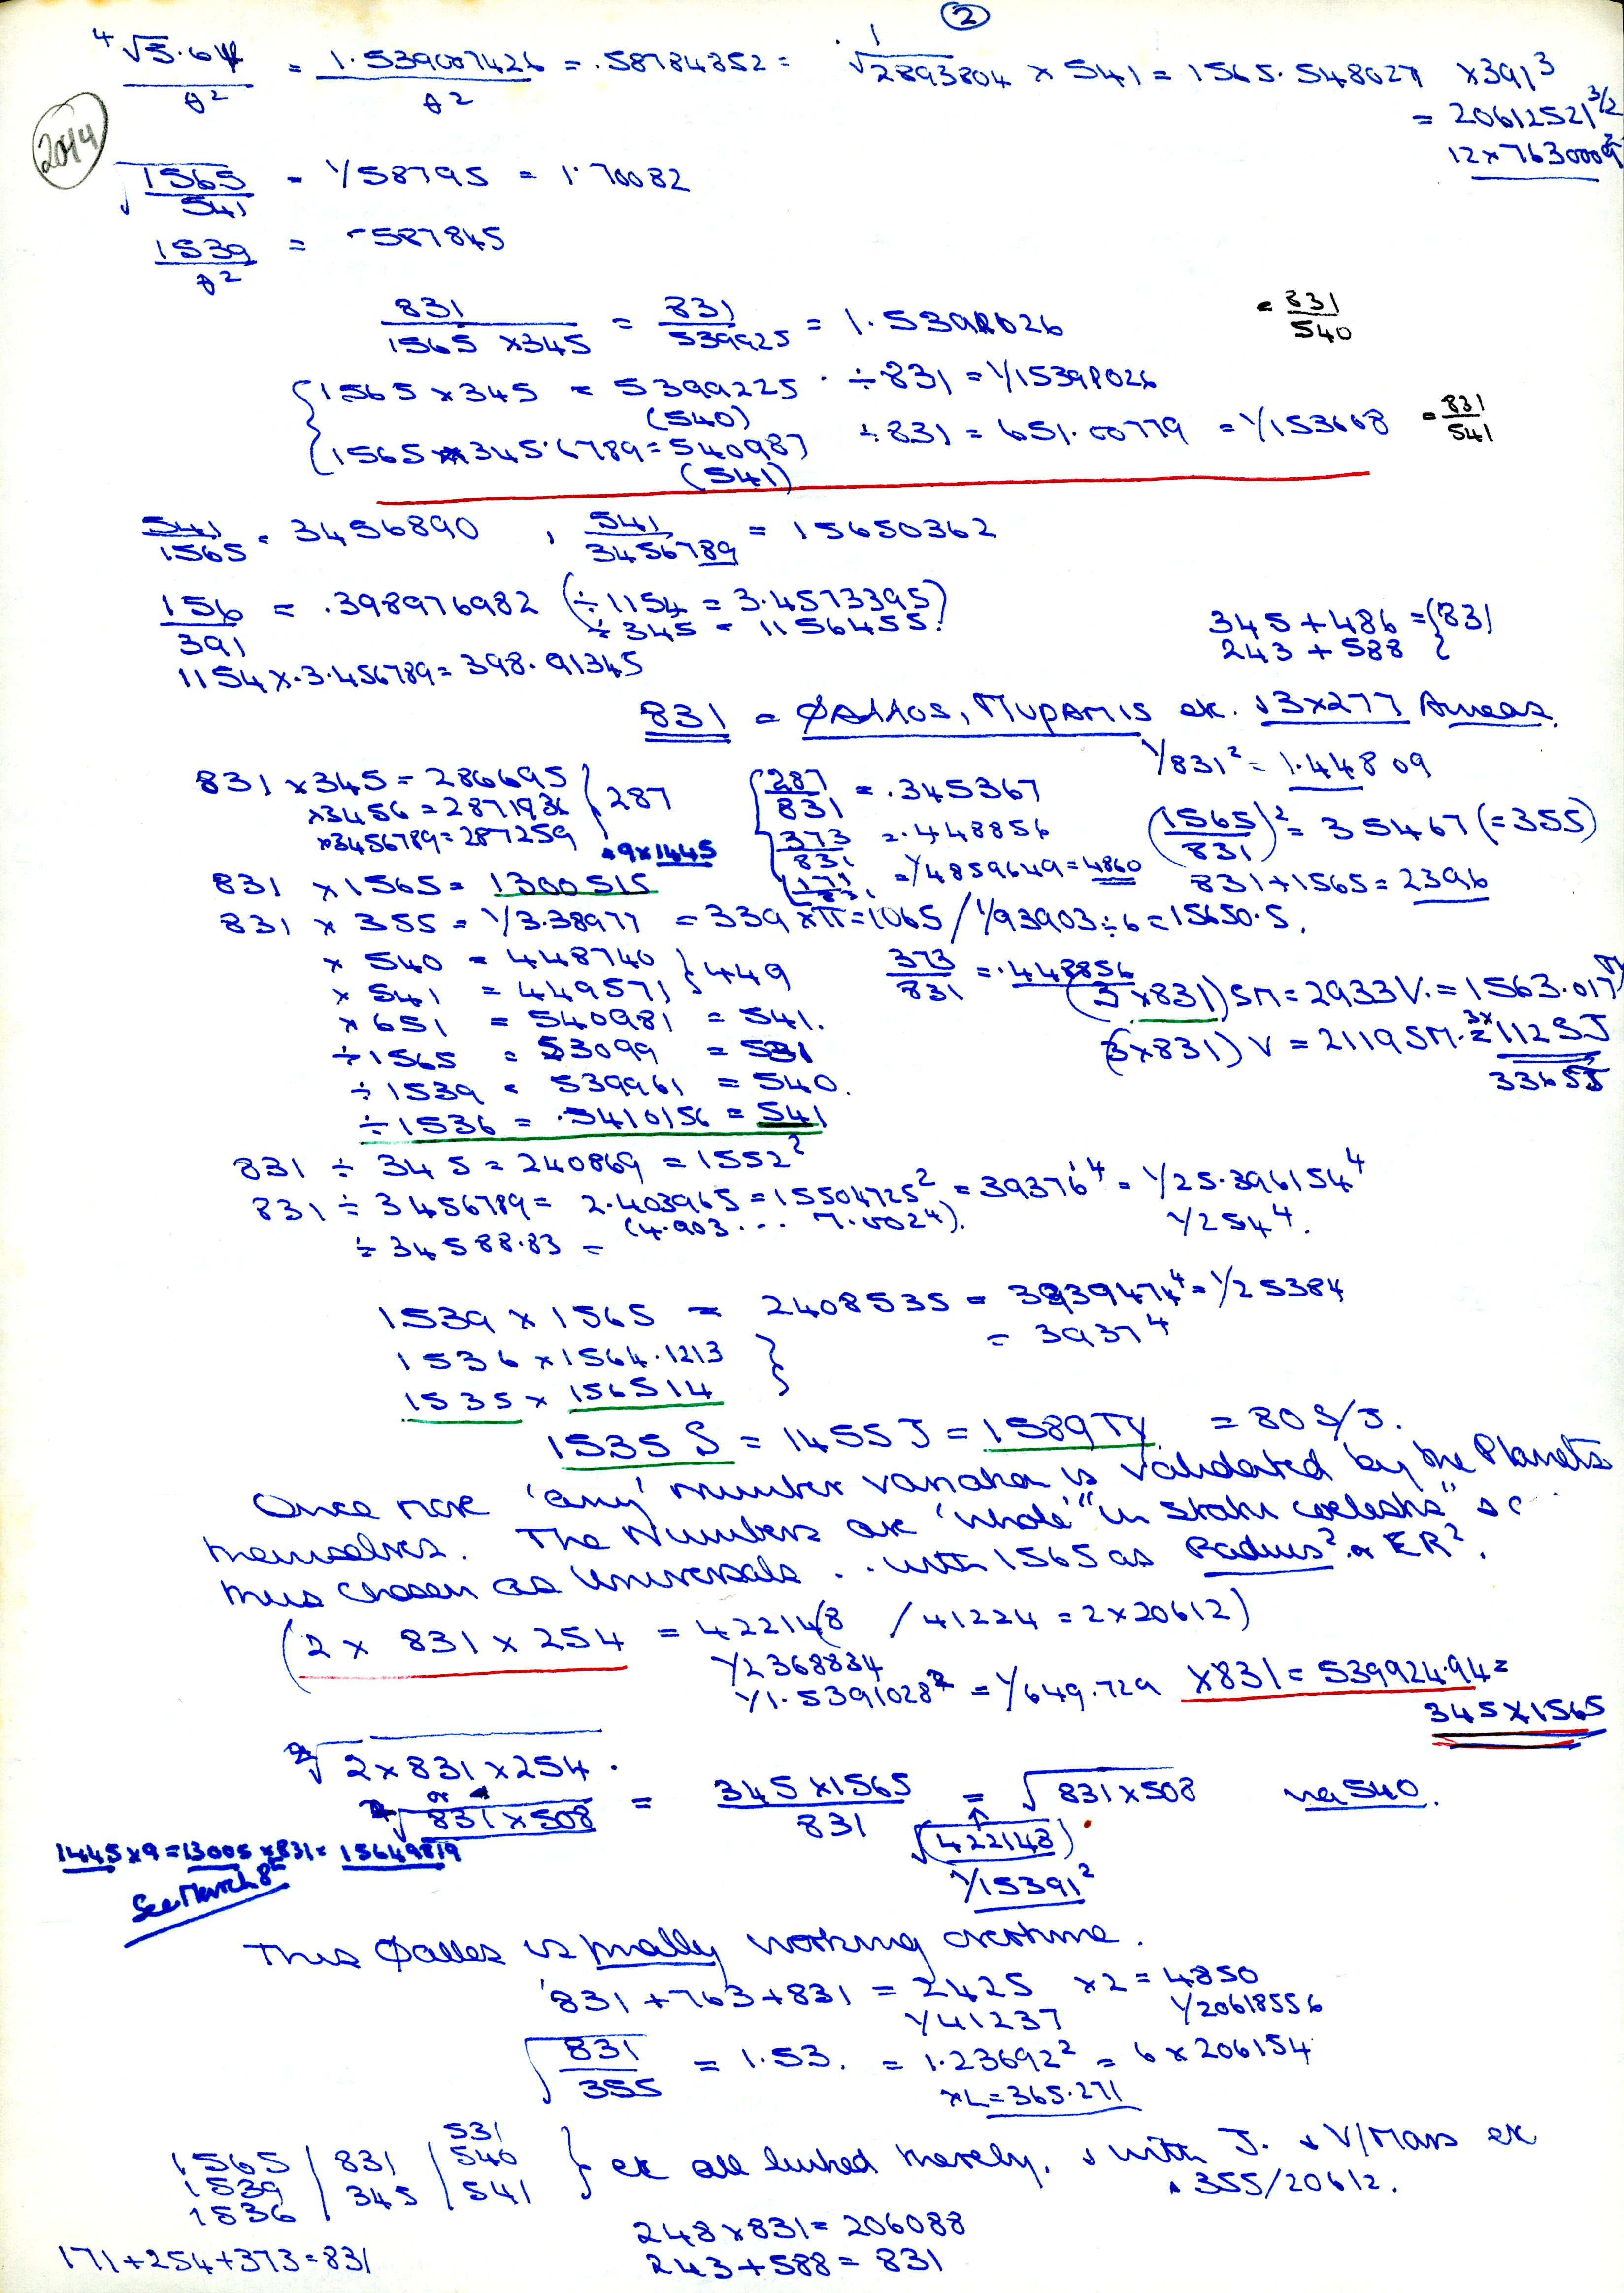 ②
⁴√5.64 / θ² = 1.539007426 / θ² = .58784352 = 1/√2893804 × 541 = 1565.548027 × 391³
= 20612521^3/2
2044
√1565/541 = 1/58795 = 1.70082
1539/θ² = .587845
831/1565 × 345 = 831/539925 = 1.539
= 831/540
1565 × 345 = 5399225 ÷ 831 = 1/15391026
(540)
1565 × 345.6789 = 540987 ÷ 831 = 651.00779 = 1/153608 = 831/541
(541)
541/1565 = 3456890 , 541/3456789 = 15650362
156/391 = .398976982 (÷ 1154 = 3.4573395)
÷ 345 = 1156455.
1154 × .3.456789 = 398.91345
345 + 486 = 831
243 + 588
831 = Φαλλος, Πυραμις etc. & 3×277
1/831² = 1.44809
831 × 345 = 286695
× 3456 = 2871936
× 3456789 = 287259
287
.9×1445
287/831 = .345367
373/831 = .448856
171/831 = 1/4859649 = 4860
(1565/831)² = 35467 (= 355)
831 + 1565 = 2396
831 × 1565 = 1300515
831 × 355 = 1/3.38977 = 339 × π = 1065 / 1/93903 ÷ 6 = 15650.5.
× 540 = 448740
× 541 = 449571
449
373/831 = .448856
(3 × 831) SM = 2933 V. = 1563.017
× 651 = 540981 = 541.
(3×831) V = 2119 SM. = 3× 112 SJ
336 SJ
÷ 1565 = 53099 = 531
÷ 1539 = 539961 = 540.
÷ 1536 = .5410156 = 541
831 ÷ 345 = 240869 = 1552²
831 ÷ 3456789 = 2.403965 = 15504725² = 39376⁴ = 1/25.396154⁴
(4.903... 7.0024).
1/254⁴.
÷ 34588.83 =
1539 × 1565 = 2408535 = 3939474⁴ = 1/25384
= 3937⁴
1536 × 1564.1213
1535 × 156514
1535 S = 1455 J = 1589 TY = 80 S/J.
Once more 'any' number variation is validated by the Planets
themselves. The Numbers are 'whole' "in statu coelestis" &
thus chosen as Universals .. with 1565 as Radius² or ER².
(2 × 831 × 254 = 422148 / 41224 = 2 × 20612)
1/2368834
1/1.5391028² = 1/649.729 × 831 = 539924.94 =
345 × 1565
²√2 × 831 × 254.
or
√831 × 508 = 345 × 1565 / 831 = √831 × 508 via 540.
√(422148)
1/15391²
1445 × 9 = 13005 × 831 = 15649819
See March 8th
This Φallos is really working overtime.
831 + 763 + 831 = 2425 × 2 = 4850
1/41237 1/20618556
√831/355 = 1.53. = 1.23692² = 6 × 206154
× L = 365.271
531
1565 / 831 / 540
1539 / 345 / 541
1536
etc all linked thereby. & with J. & V/Mars etc
& 355/20612.
248 × 831 = 206088
171 + 254 + 373 = 831
243 + 588 = 831